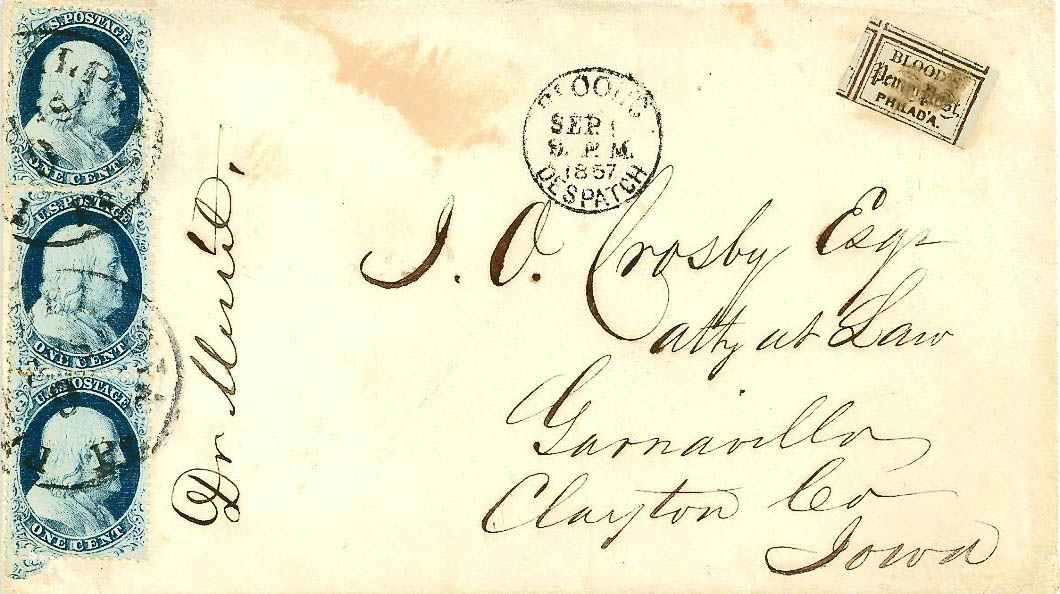 U.S. POSTAGE
ONE CENT
U.S. POSTAGE
ONE CENT
U.S. POSTAGE
ONE CENT
Dr
BLOOD'S
SEP 1
P. M.
1857
DESPATCH
BLOOD'S
Penny Post,
PHILAD'A.
J. O. Crosby Esqr
Atty at Law
Garnavillo
Clayton Co
Iowa